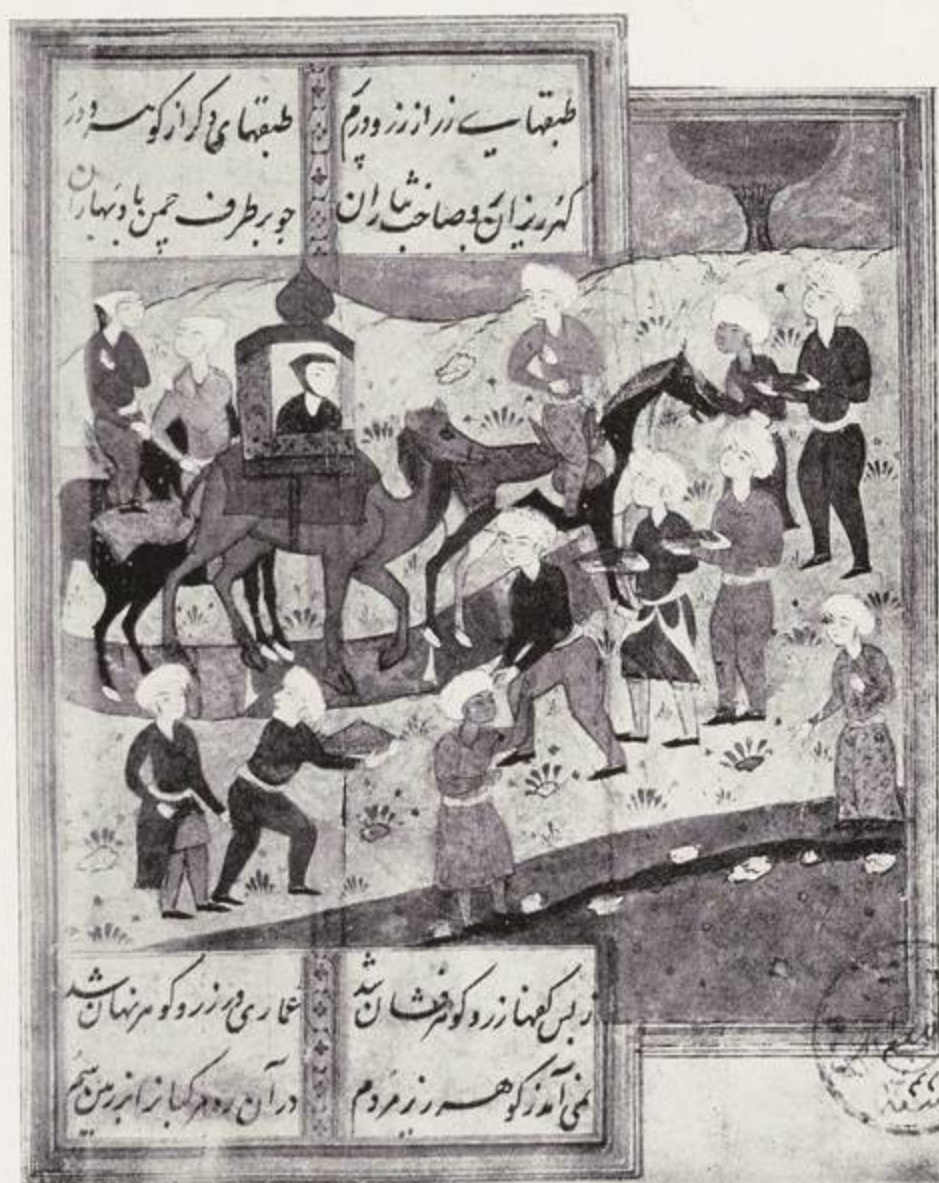 طبقهایے زر از زر و درم پر طبقهای دگر از گوهر و در
گهرریزان برو صاحب نثاران چو بر طرف چمن باد بهاران
ز بس کفها زر و گوهر فشان شد عماری در زر و گوهر نهان شد
نمی آمد ز گوهر ریز مردم در آن ره مرکبانرا بر زمین سم